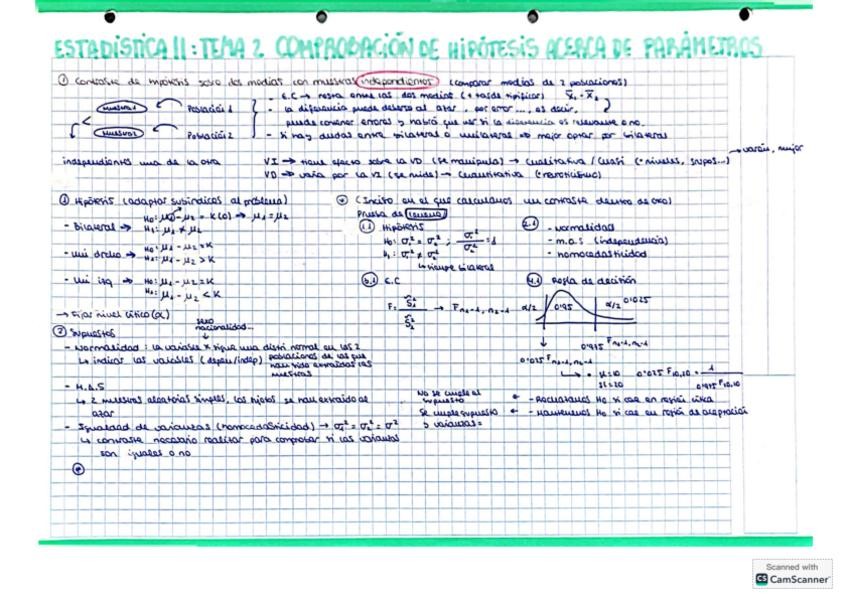 ESTADÍSTICA II: TEMA 2 COMPROBACIÓN DE HIPÓTESIS ACERCA DE PARÁMETROS
① Contraste de hipótesis sobre dos medias con muestras independientes (comparar medias de 2 poblaciones)
Muestra 1 Población 1
Muestra 2 Población 2
- E.C → resta entre las dos medias (+ tarde tipificar) X̄₁ - X̄₂
- la diferencia puede deberse al azar, por error..., es decir,
puede contener errores y habrá que ver si la diferencia es relevante o no.
- si hay dudas entre bilateral o unilateral ⇒ mejor optar por bilateral
independientes una de la otra
VI → tiene efecto sobre la VD (se manipula) → Cualitativa / Cuasi (+ niveles, grupos...) → varón, mujer
VD → varía por la VI (se mide) → Cuantitativa (neuroticismo)
① Hipótesis (adaptar subíndices al problema)
- Bilateral → H₀: μ₁ - μ₂ = K (0) → μ₁ = μ₂
H₁: μ₁ ≠ μ₂
- Uni drcho → H₀: μ₁ - μ₂ = K
H₁: μ₁ - μ₂ > K
- Uni izq → H₀: μ₁ - μ₂ = K
H₁: μ₁ - μ₂ < K
→ Fijar nivel crítico (α)
② Supuestos
sexo
nacionalidad...
- Normalidad: la variable x sigue una distri normal en las 2
↳ indicar las variables (depen/indep) poblaciones de las que
han sido extraídas las
muestras
- M.A.S
↳ 2 muestras aleatorias simples, los sujetos se han extraído al
azar
- Igualdad de varianzas (homocedasticidad) → σ₁² = σ₂² = σ²
↳ contraste necesario realizar para comprobar si las varianzas
son iguales o no
⊛
⊛ (Inciso en el que calculamos un contraste dentro de otro)
Prueba de
1.1 Hipótesis
H₀: σ₁² = σ₂² ; σ₁²/σ₂² = 1
H₁: σ₁² ≠ σ₂²
↳ siempre bilateral
2.1 - normalidad
- m.a.s (independencia)
- homocedasticidad
3.1 E.C
F = Ŝ₁²/Ŝ₂² → F n₁-1, n₂-1
4.1 Regla de decisión
α/2 0'95 α/2 0'025
0'975 F n₁-1, n₂-1
0'025 F n₁-1, n₂-1
0'025 F 10,10 = 1/0'975 F 10,10
No se cumple el
supuesto ← - Rechazamos H₀ si cae en región crítica
Se cumple supuesto ← - Mantenemos H₀ si cae en región de aceptación
y varianzas =
Scanned with
CS CamScanner